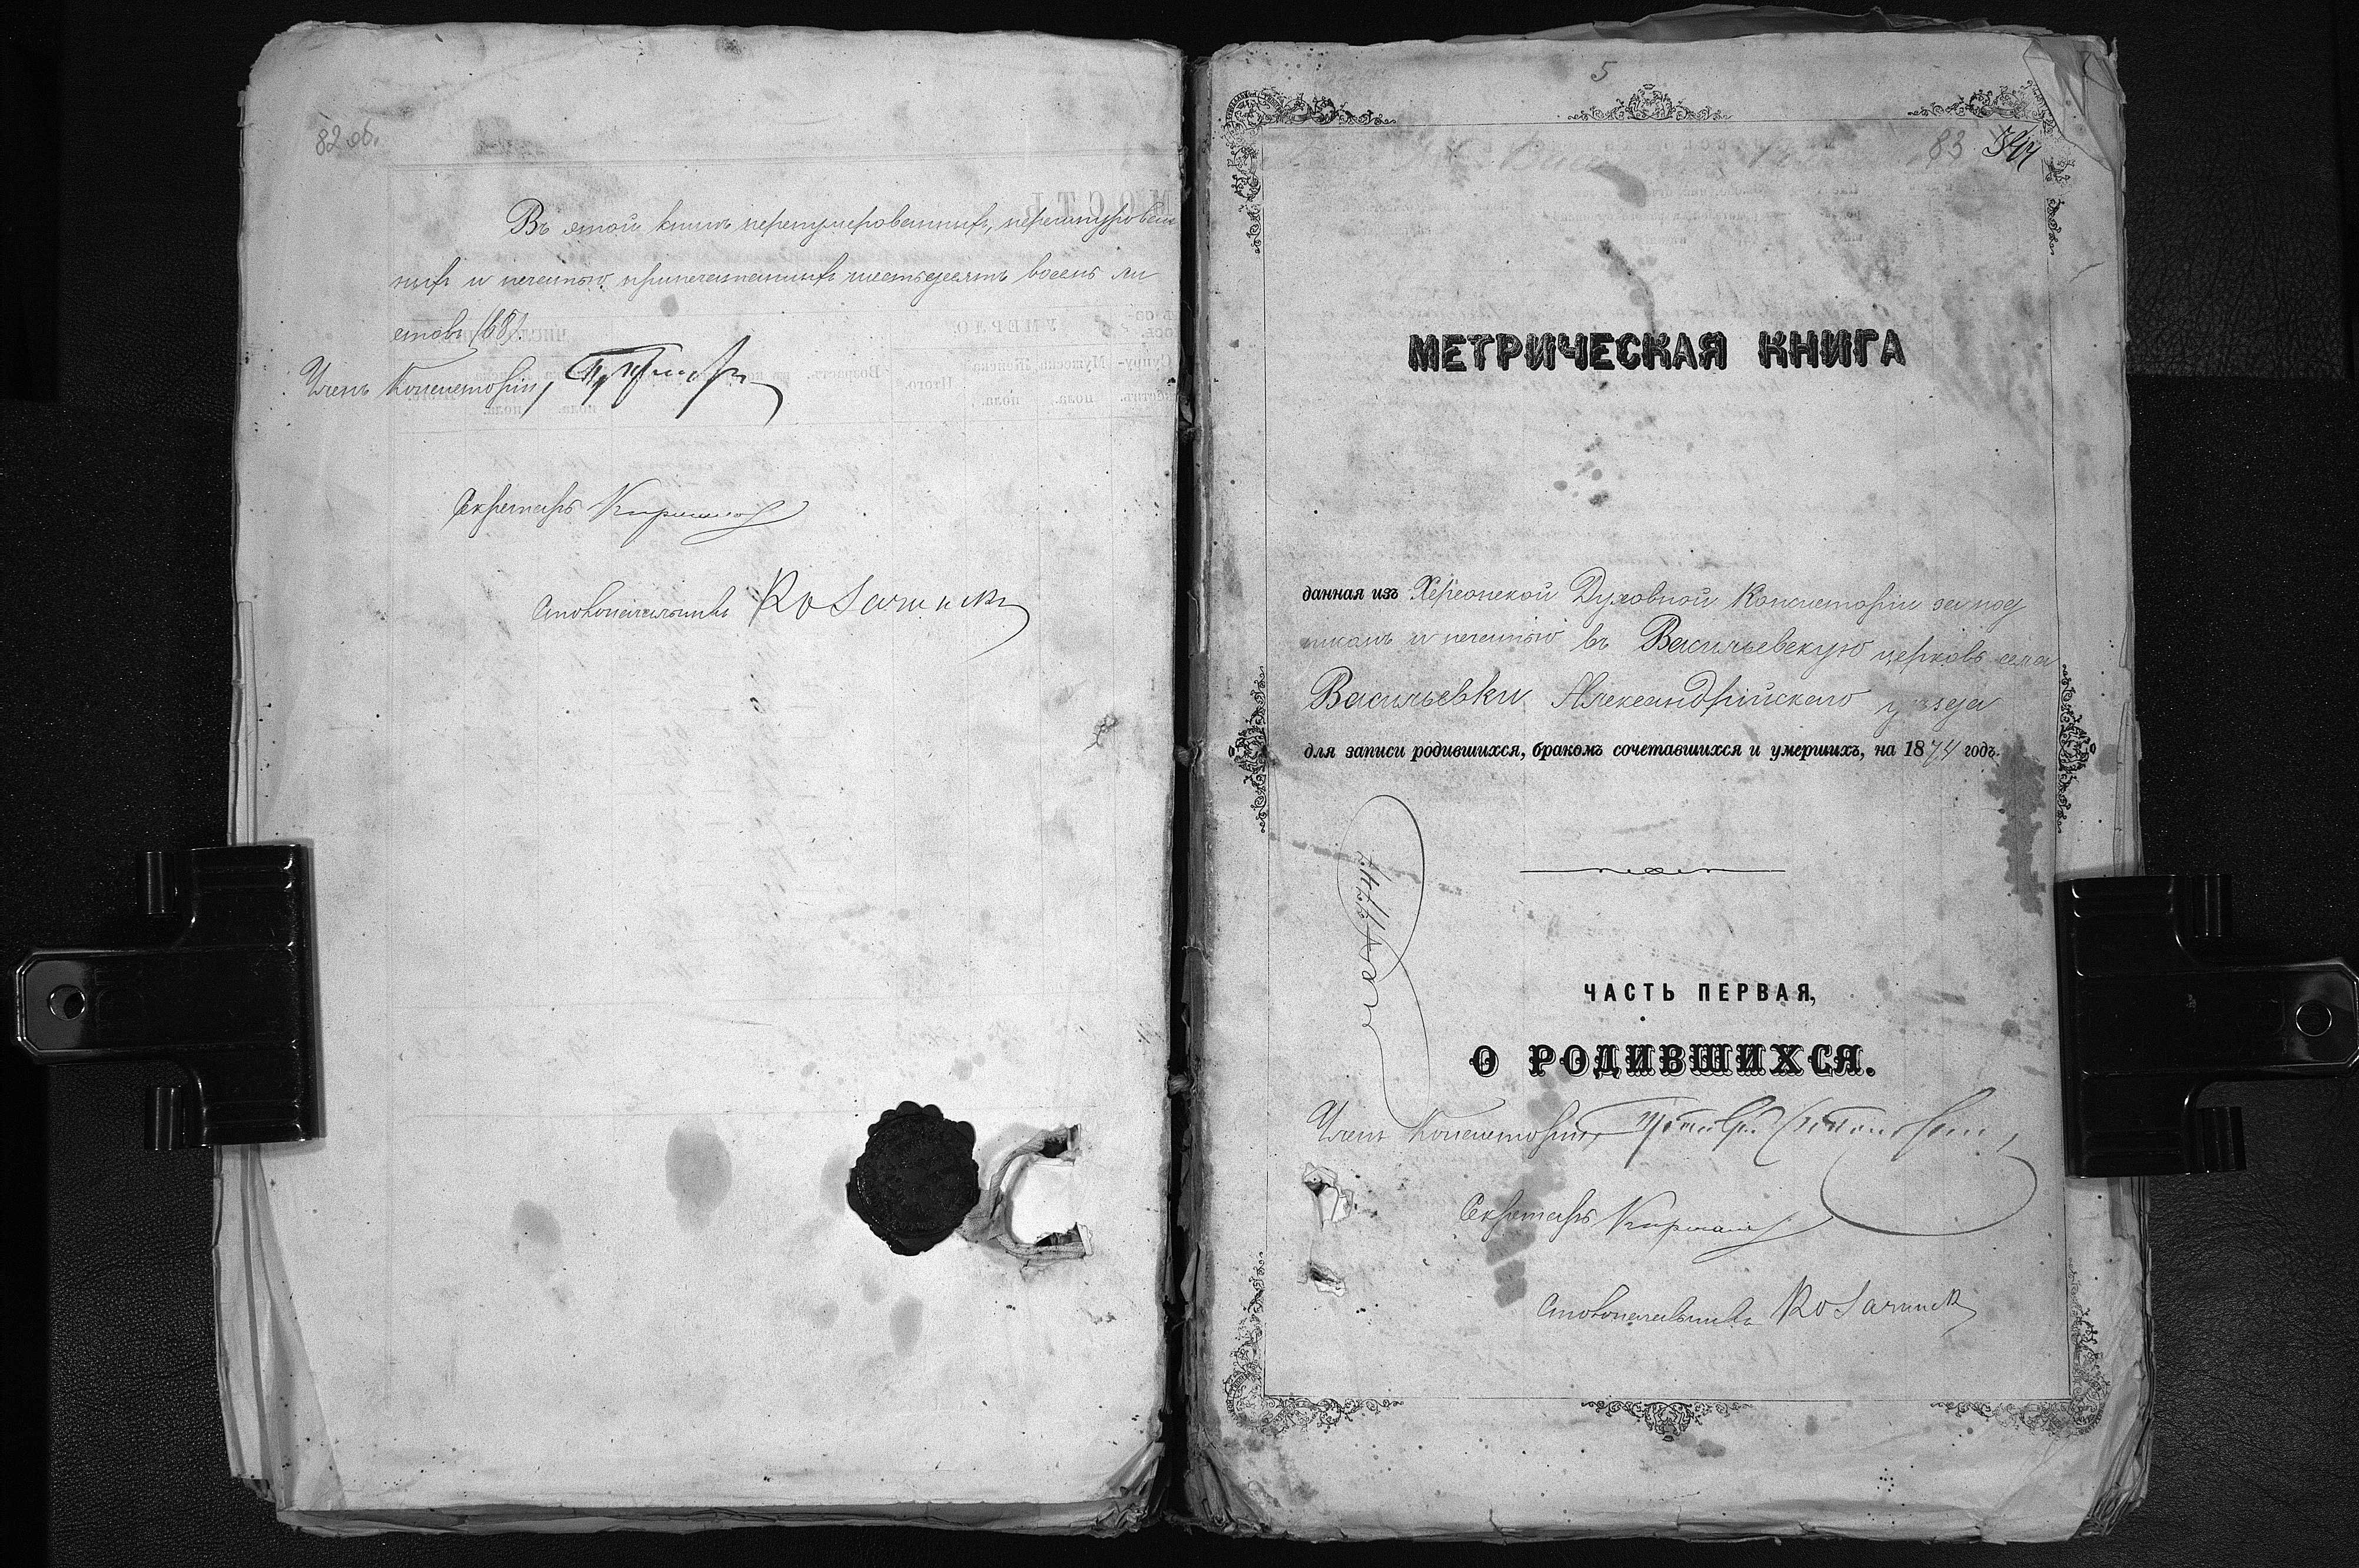 82 об.
Въ этой книгѣ перенумерованныхъ, перешнурован
ныхъ и печатью припечатанныхъ шестьдесятъ восемь ли
стовъ (68).
Членъ Консисторіи,
Секретарь
Столоначальникъ
5
83
МЕТРИЧЕСКАЯ КНИГА
данная изъ Херсонской Духовной Консисторіи за под
писомъ и печатью въ Васильевскую церковь села
Васильевки Александрійскаго уѣзда
для записи родившихся, бракомъ сочетавшихся и умершихъ, на 1874 годъ.
ЧАСТЬ ПЕРВАЯ,
О РОДИВШИХСЯ.
Членъ Консисторіи,
Секретарь
Столоначальникъ